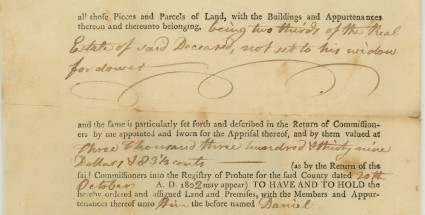 all those Pieces and Parcels of Land, with the Buildings and Appurtenances
thereon and thereunto belonging, being two thirds of the Real
Estate of said Deceased, not set to his widow
for dower
and the same is particularly set forth and described in the Return of Commission-
ers by me appointed and sworn for the Apprisal thereof, and by them valued at
three thousand three hundred & thirty nine
Dollars & 83⅓ cents (as by the Return of the
said Commissioners into the Registry of Probate for the said County dated 20th
October A. D. 1802 may appear) TO HAVE AND TO HOLD the
hereby ordered and assigned Land and Premises, with the Members and Appur-
tenances thereof unto Him the before named Daniel